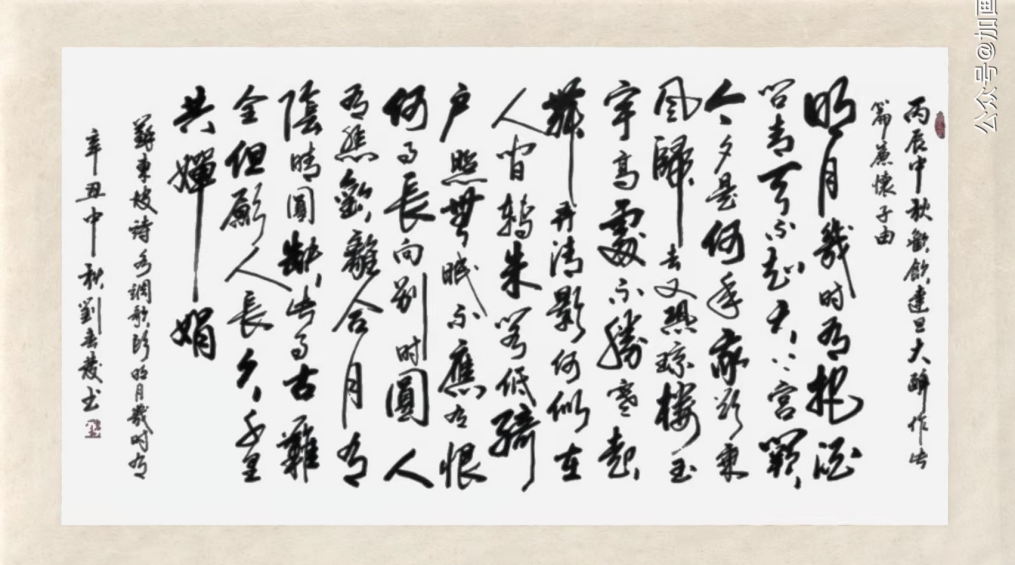 丙辰中秋歡飲達旦大醉作此
篇兼懷子由
明月幾时有把酒
问青天不知天上宮闕
今夕是何年我欲乘
风歸去又恐琼楼玉
宇高處不勝寒起
舞弄清影何似在
人间转朱阁低綺
户照無眠不應有恨
何事長向别时圓人
有悲歡離合月有
陰晴圓缺此事古難
全但願人長久千里
共嬋娟
蘇東坡詩水調歌頭明月幾时有
辛丑中秋劉春茂书
公众号@加画